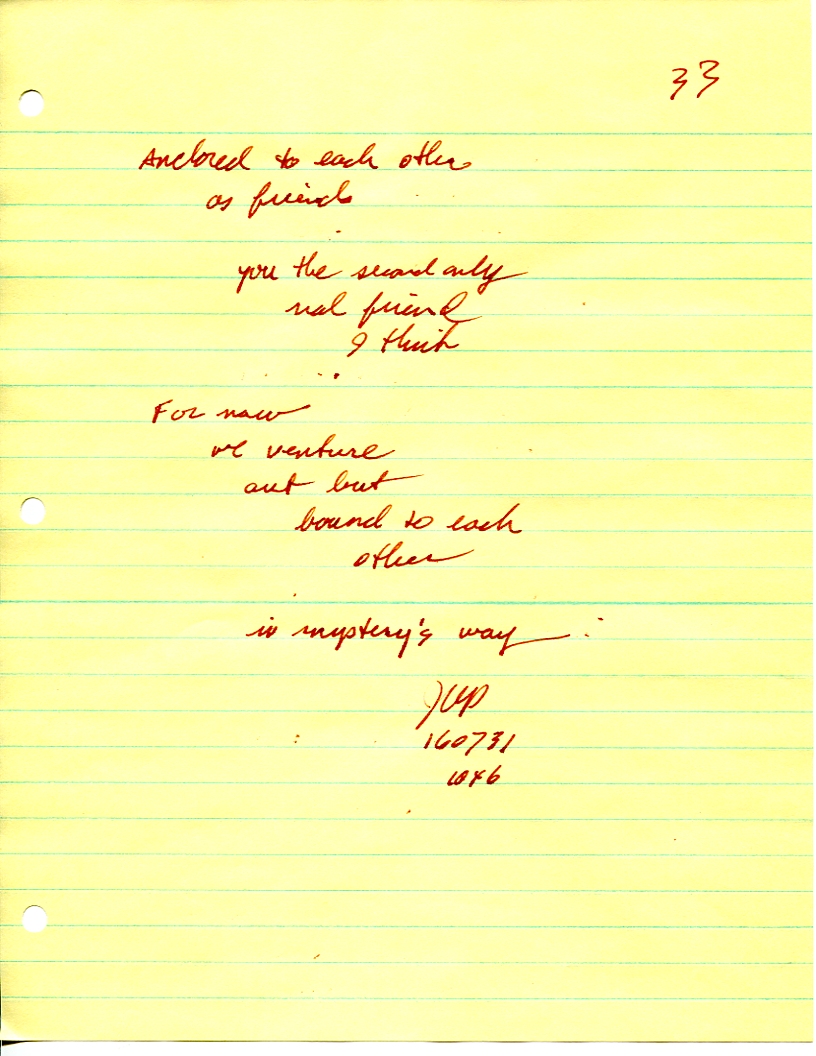 33
Anchored to each other
as friends
you the second only
real friend
I think
For now
we venture
out but
bound to each
other
in mystery's way
160731
1046